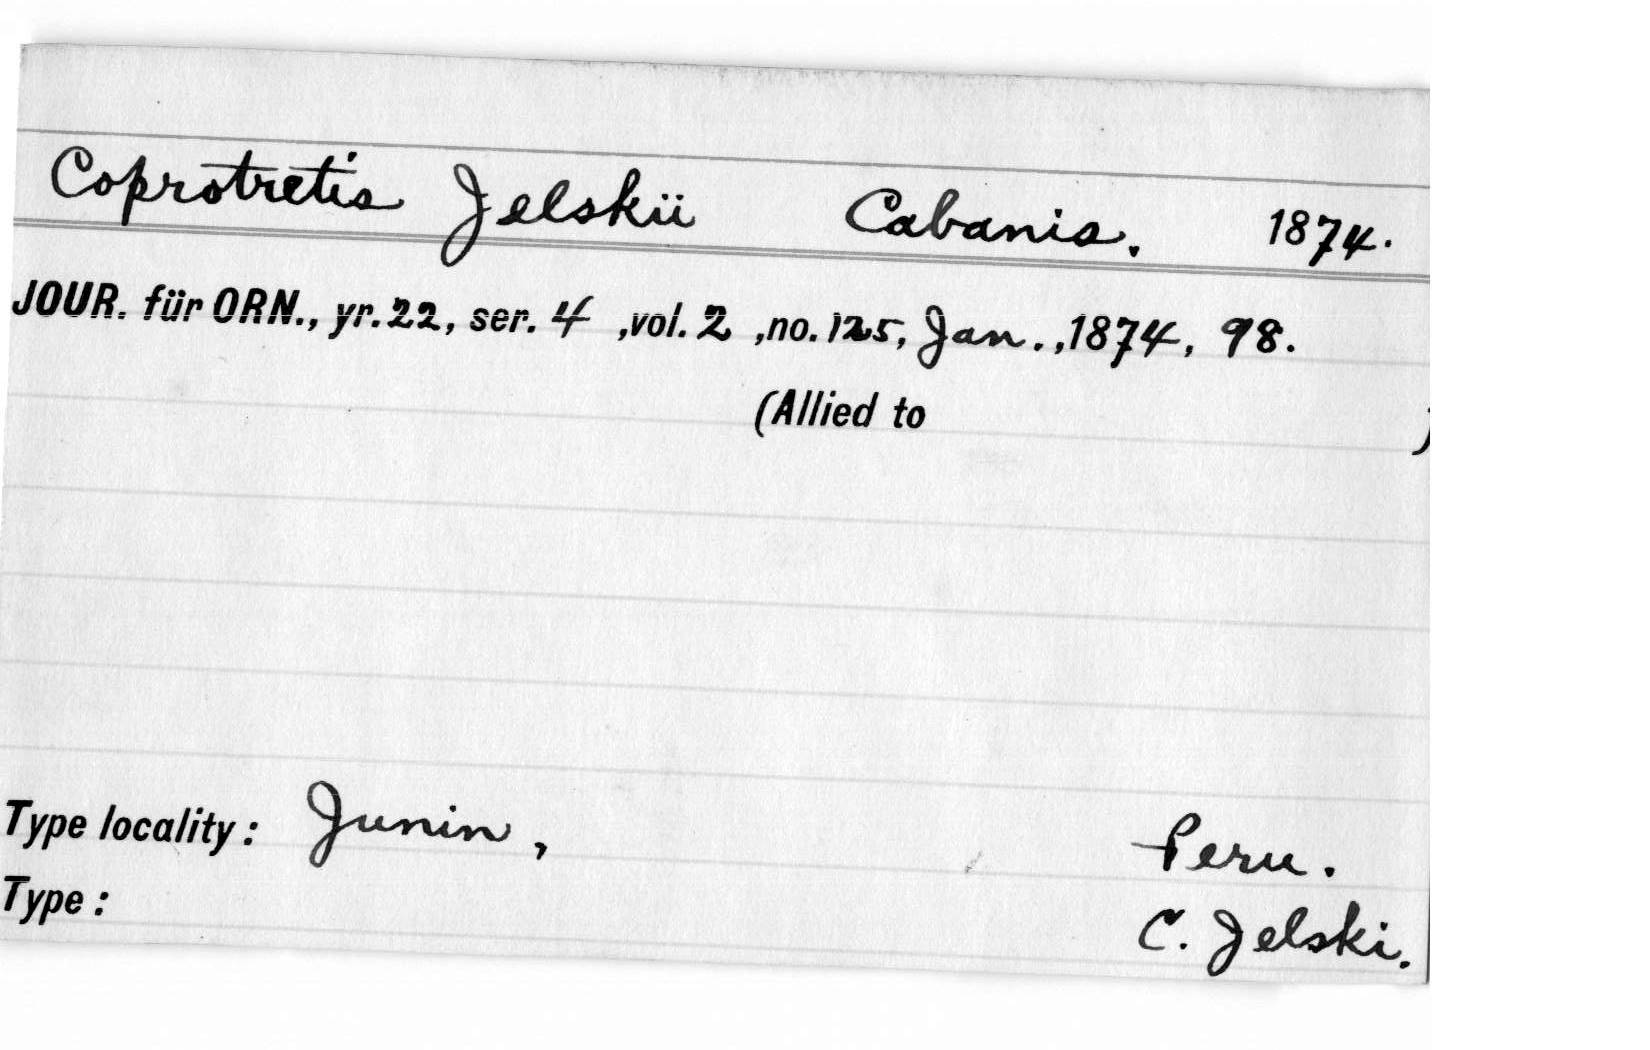 Coprotretis Jelskii Cabanis. 1874.
JOUR. für ORN., yr. 22, ser. 4 ,vol. 2 ,no. 125, Jan. ,1874, 98.
(Allied to )
Type locality: Junin, Peru.
Type: C. Jelski.